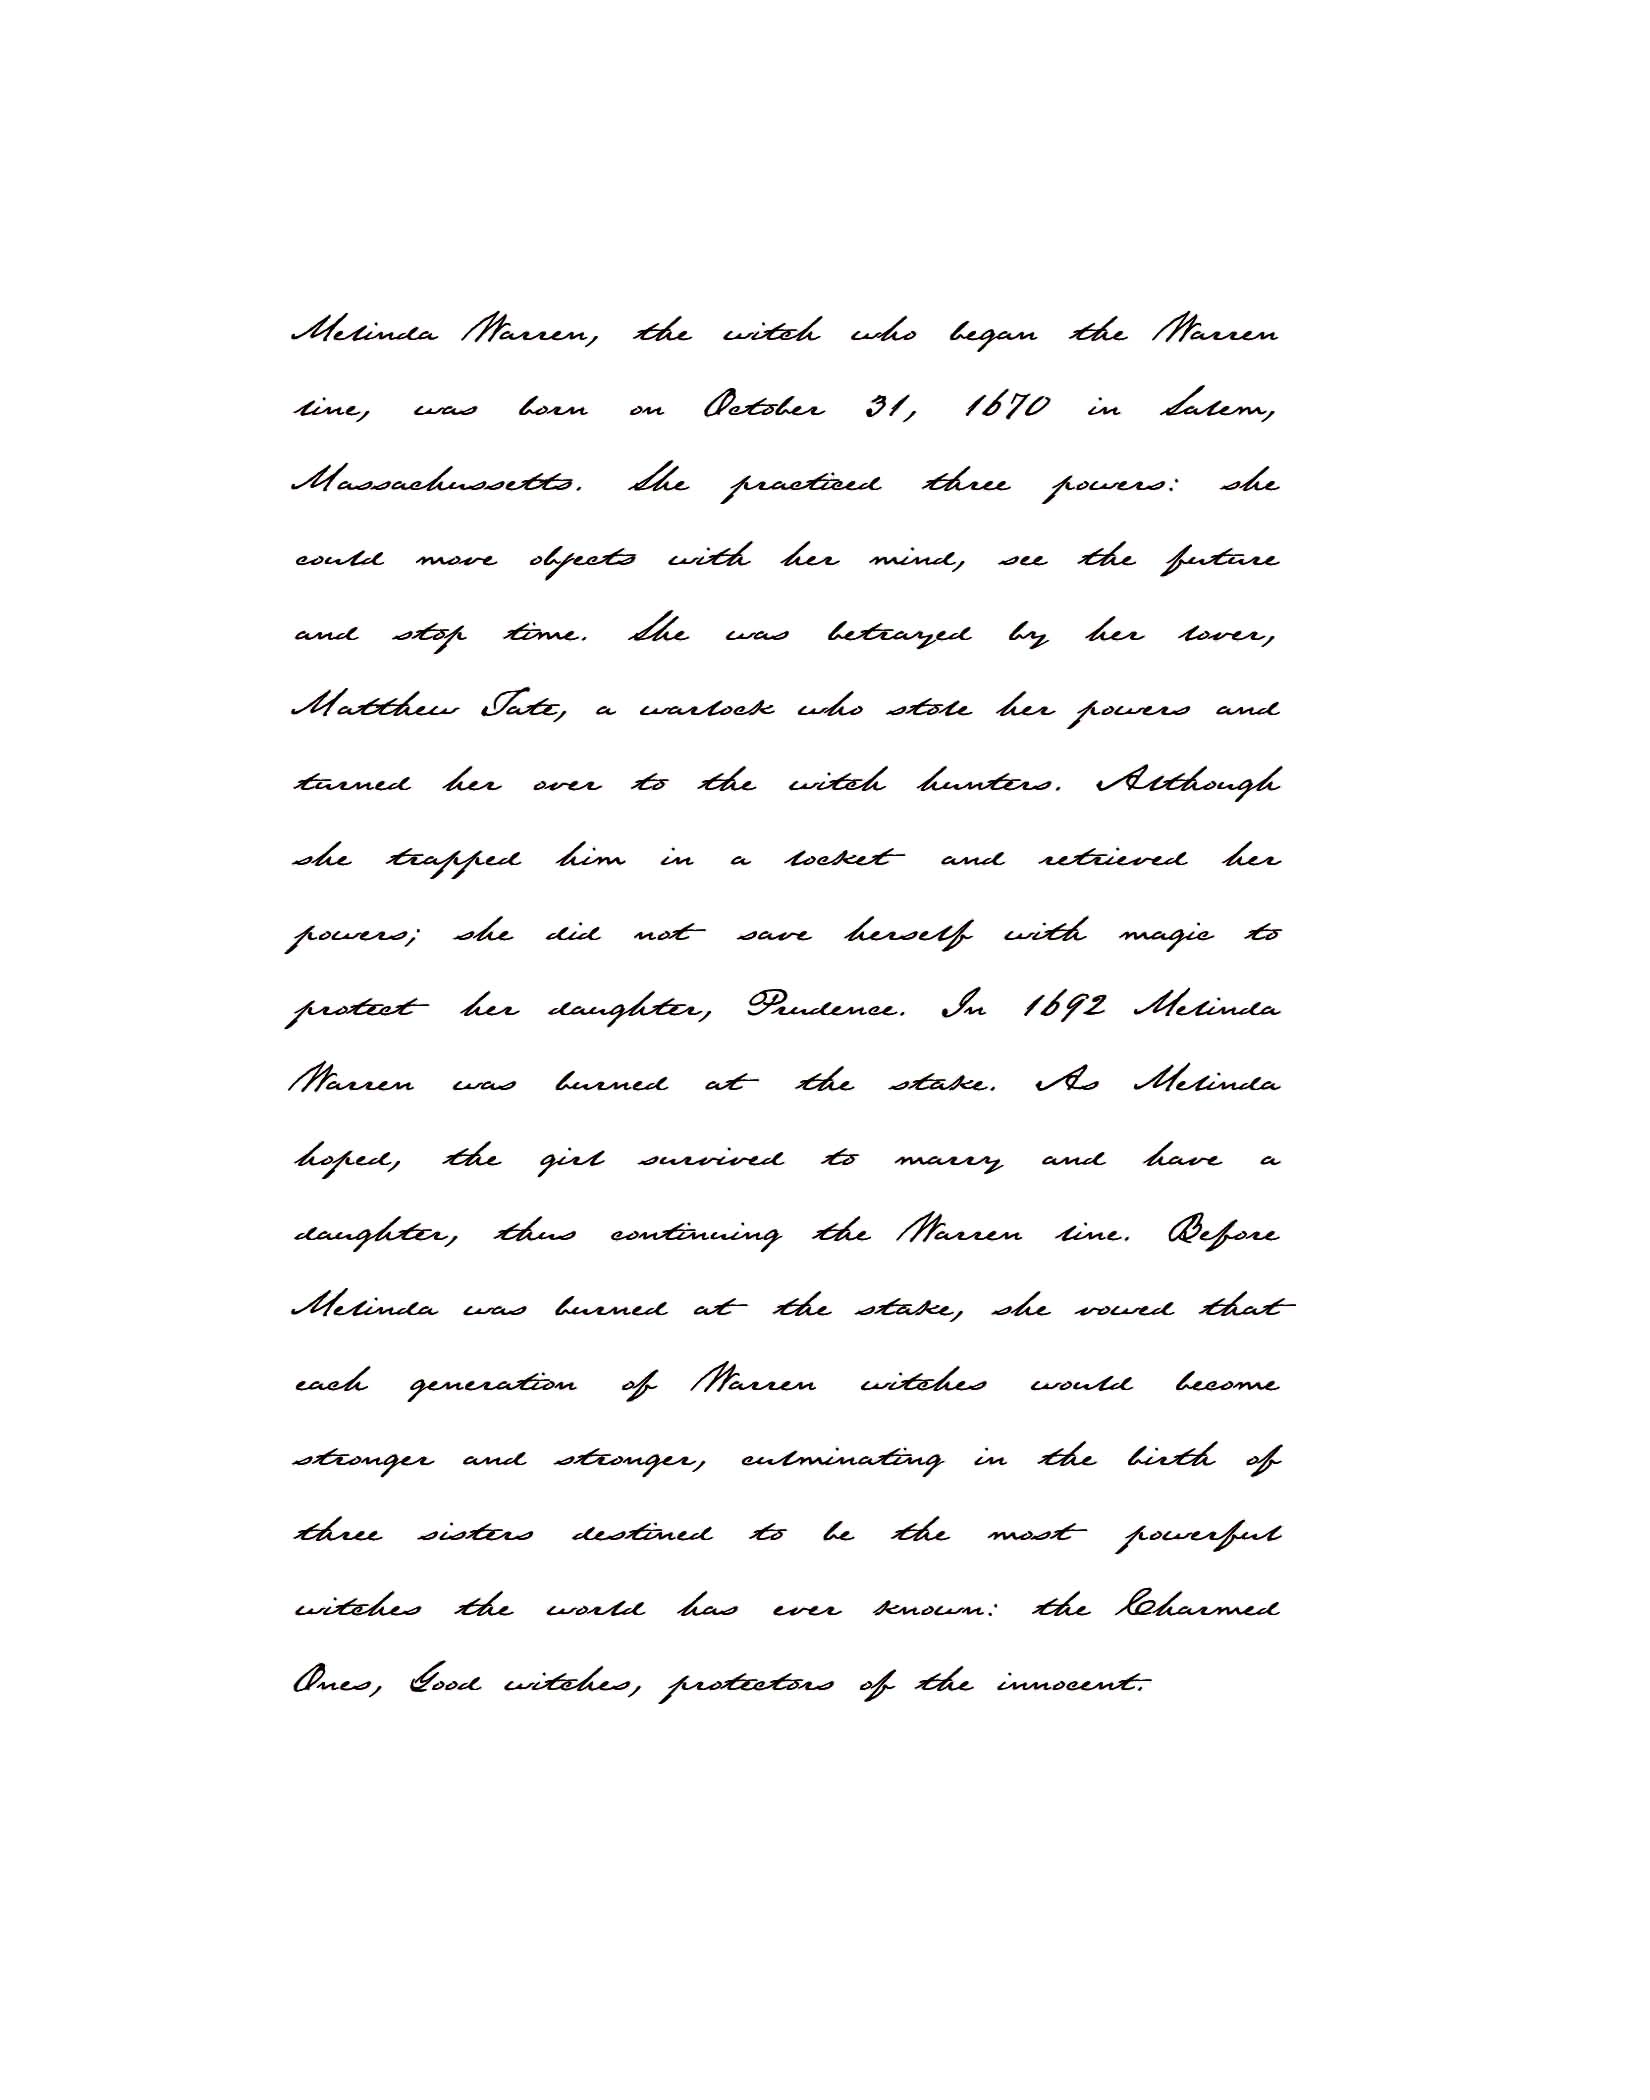 Melinda Warren, the witch who began the Warren
line, was born on October 31, 1670 in Salem,
Massachussetts. She practiced three powers: she
could move objects with her mind, see the future
and stop time. She was betrayed by her lover,
Matthew Tate, a warlock who stole her powers and
turned her over to the witch hunters. Although
she trapped him in a locket and retrieved her
powers; she did not save herself with magic to
protect her daughter, Prudence. In 1692 Melinda
Warren was burned at the stake. As Melinda
hoped, the girl survived to marry and have a
daughter, thus continuing the Warren line. Before
Melinda was burned at the stake, she vowed that
each generation of Warren witches would become
stronger and stronger, culminating in the birth of
three sisters destined to be the most powerful
witches the world has ever known: the Charmed
Ones, Good witches, protectors of the innocent.